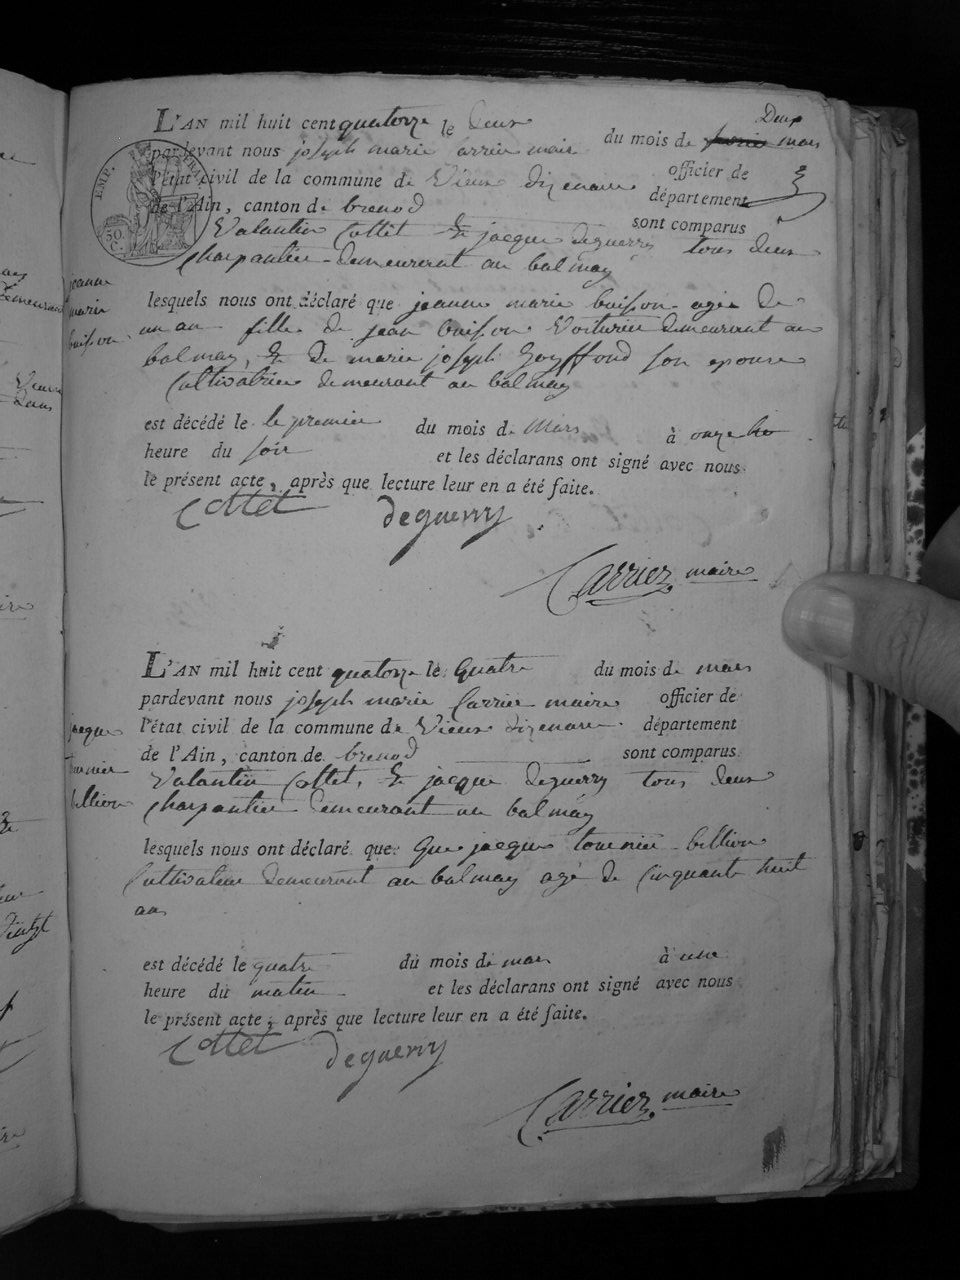 L'AN mil huit cent quatorze le deux du mois de mars
Deux
pardevant nous joseph marie arrier mair officier de
l'état civil de la commune de Vieux dizenave département
de l'Ain, canton de brenod sont comparus
Valantin Cottet & jacque deguerry tous deux
Charpantier demeurent au balmay
jeanne
marie
buisson
lesquels nous ont déclaré que jeanne marie buisson agée de
un an fille de jean buisson Voiturier demeurant au
balmay, & de marie joseph goyffond son epouse
Cultivatrice demeurant au balmay
est décédé le le premier du mois de Mars à onze
heure du soir et les déclarans ont signé avec nous
le présent acte, après que lecture leur en a été faite.
Cottet deguerry
Carrier maire
L'AN mil huit cent quatorze le quatre du mois de mars
pardevant nous joseph marie Carrier maire officier de
l'état civil de la commune de Vieux dizenave département
de l'Ain, canton de brenod sont comparus
Valantin Cottet, & jacque deguerry tous deux
Charpantier demeurant au balmay
jacque
tournier
billion
lesquels nous ont déclaré que que jacque tournier billion
Cultivateur demeurant au balmay agé de Cinquante huit
ans
est décédé le quatre du mois de mars à une
heure du matin et les déclarans ont signé avec nous
le présent acte, après que lecture leur en a été faite.
Cottet deguerry
Carrier maire
EMP. FRA
50.
C.